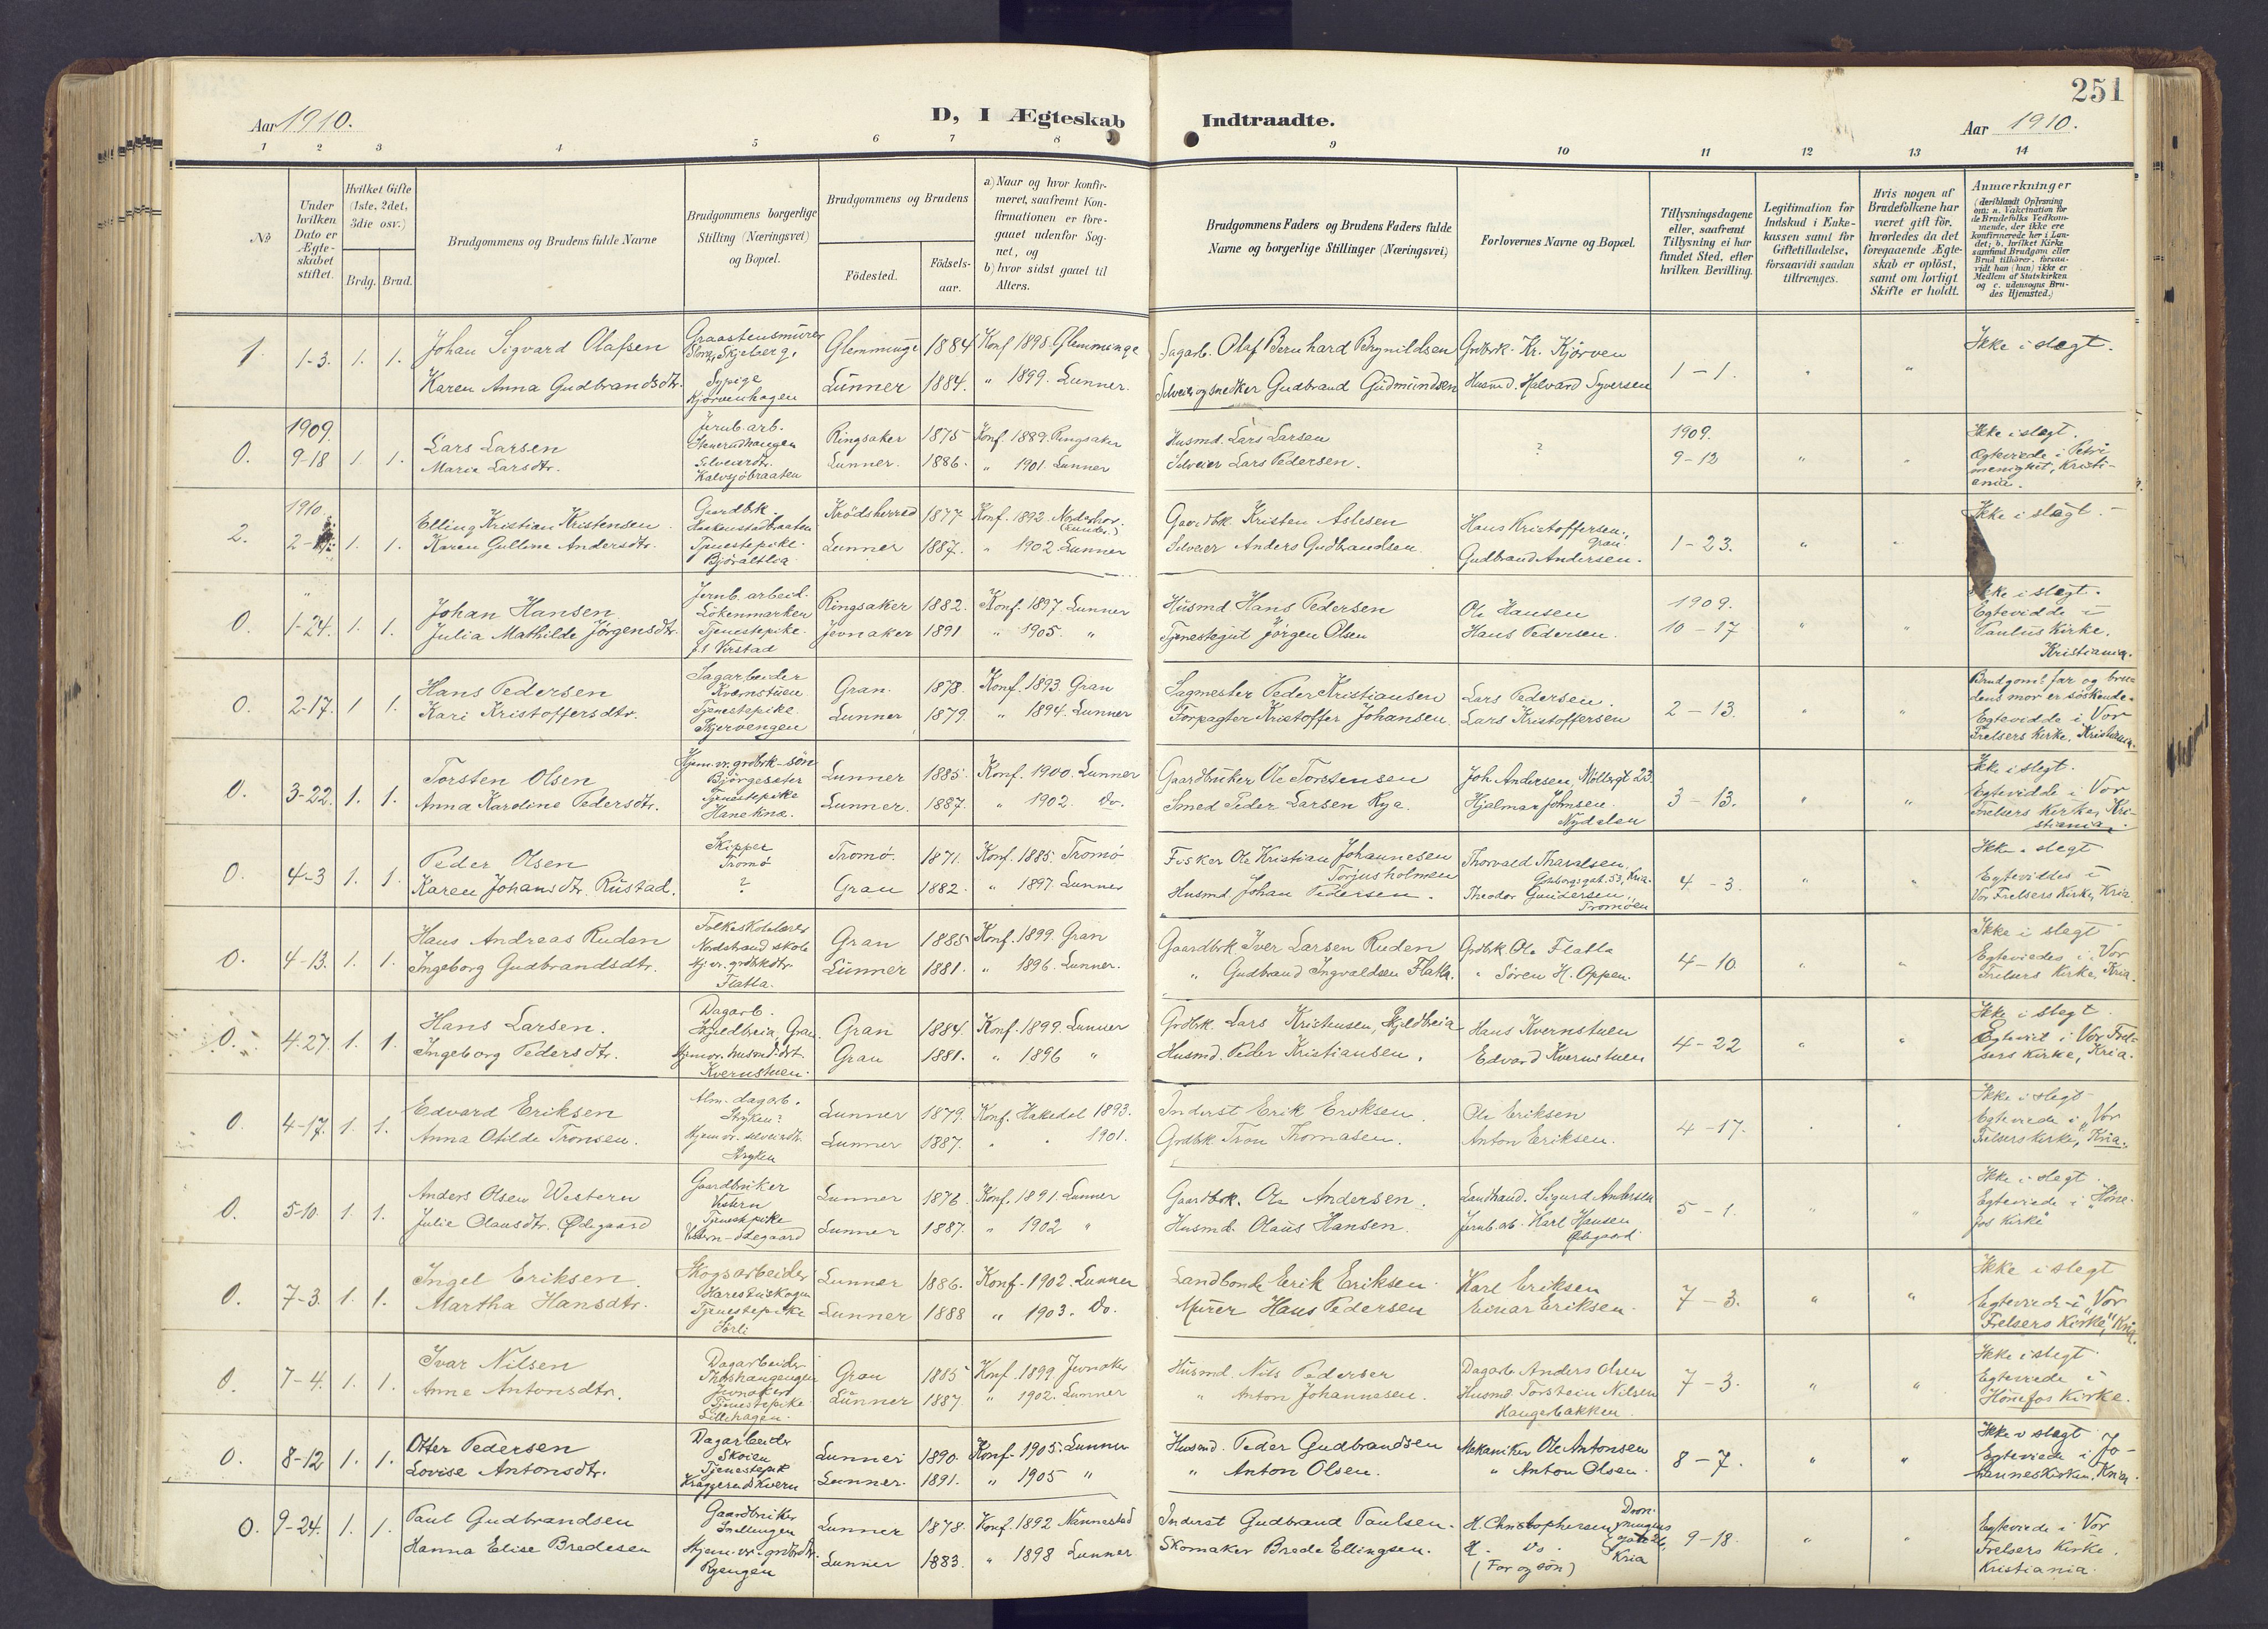 251
Aar 1910.
D, I Ægteskab Indtraadte.
Aar 1910.
1 2 3 4 5 6 7 8 9 10 11 12 13 14
No
Under hvilken Dato er Ægteskabet stiftet.
Hvilket Gifte (1ste, 2det, 3die osv.)
Brdg. Brud.
Brudgommens og Brudens fulde Navne
Brudgommens borgerlige Stilling (Næringsvei) og Bopæl.
Brudgommens og Brudens
Födested.
Födselsaar.
a) Naar og hvor konfirmeret, saafremt Konfirmationen er foregaaet udenfor Sognet, og
b) hvor sidst gaaet til Alters.
Brudgommens Faders og Brudens Faders fulde Navne og borgerlige Stillinger (Næringsvei)
Forlovernes Navne og Bopæl.
Tillysningsdagene eller, saafremt Tillysning ei har fundet Sted, efter hvilken Bevilling.
Legitimation for Indskud i Enkekassen samt for Giftetilladelse, forsaavidt saadan tiltrænges.
Hvis nogen af Brudefolkene har været gift før, hvorledes da det foregaaende Ægteskab er oplöst, samt om lovligt Skifte er holdt.
Anmærkninger
(deriblandt Oplysning om: a. Vakcination for de Brudefolks Vedkommende, der ikke ere konfirmerede her i Landet; b. hvilket Kirkesamfund Brudgom eller Brud tilhörer, forsaavidt han (hun) ikke er Medlem af Statskirken og c. udensogns Brudes Hjemsted.)
1. 1-3. 1. 1. Johan Sigvard Olafsen Graastensmürer Skjeberg. Glemminge 1884 Konf 1898. Glemminge Sagarb. Olaf Bernhard Brynildsen Grdbrk. Kr. Kjörven 1-1. " " Ikke i slegt.
Karen Anna Gudbrandsdtr. Sypige Kjörvenhagen Lunner 1884. " 1899. Lunner. Selveier og snedker Gudbrand Gudmundsen Husmd. Halvard Syversen
0. 1909. 9-18 1. 1. Lars Larsen Jernb. arb. Ringsaker 1875 Konf. 1889. Ringsaker Husmd. Lars Larsen ? 1909. 9-12 " " Ikke i slegt.
Maria Larsdtr. Selveierdtr. Kalvsjöbraaten Lunner. 1886. " 1901. Lunner Selveier Lars Pedersen. Egteviede i Petri menighet, Kristiania.
2. 1910. 2- 1. 1. Elling Kristian Kristensen Gardbk. Krödsherred 1877 Konf. 1892. Gardbk. Kristen Aslesen Hans Kristoffersen, Gran 1-23. " " Ikke i slegt. -
Karen Gulline Andersdtr. Tjenestepike. Lunner 1887. " 1902. Lunner Selveier Anders Gudbrandsen. Gudbrand Andersen.
0. " 1-24. 1. 1. Johan Hansen Jernb. arbeid. Lökenmarken Ringsaker 1882. Konf. 1897. Lunner Husmd Hans Pedersen Ole Hansen 1909. 10-17 " " Ikke i slegt.
Julia Mathilde Jörgensdtr. Tjenestepike. Jevnaker 1891 " 1905. " Tjenestegut Jörgen Olsen Hans Pedersen. Egteviede i Paulus Kirke. Kristiania.
0. 2-17. 1 1. Hans Pedersen Sagarbeider Kvernstuen Gran. 1878. Konf. 1893. Gran Sagmester Peder Kristiansen Lars Pedersen. 2-13. " " Brudgoms far og brudens mor er söskende.
Kari Kristoffersdtr. Tjenestepike Skjervengen Lunner 1879. " 1894. Lunner Forpagter Kristoffer Johansen Lars Kristoffersen Egteviede i Vor Frelsers Kirke. Kristiania.
0. 3-22. 1. 1. Torsten Olsen Hjem.v. grdbrk-sön Björgeseter Lunner 1885. Konf. 1900. Lunner Gaardbruker Ole Torstensen Joh Andersen, Möllergt 23. 3-13. " " Ikke i slegt.
Anna Karoline Pedersdtr. Tjenestepike Haneknæ. Lunner. 1887. " 1902. do. Smed Peder Larsen Rya. Hjalmar Johnsen. Nydalen Egteviede i Vor Frelsers Kirke, Kristiania.
0. 4-3 1. 1. Peder Olsen Skipper Tromö Tromö. 1871. Konf. 1885. Tromö Fisker Ole Kristian Johannesen Torjusholmen Thorvald 53, Kria. 4-3. " " Ikke i slegt
Karen Johansdtr. Rustad. ? Gran 1882. " 1897. Lunner Husmd. Johan Pedersen. Theodor Gundersen, Tromöen Egteviedes i Vor Frelsers Kirke, Kria.
0. 4-13. 1. 1. Hans Andreas Ruden Folkeskolelærer Nordstrand skole Gran 1885 Konf. 1899. Gran Gaardbrk Iver Larsen Ruden Grdbrk. Ole Flatla 4-10. " " Ikke i slegt
Ingeborg Gudbrandsdtr. Hj. v. grdbkdtr. Flatla. Lunner 1881. " 1896. Lunner. " Gudbrand Ingvaldsen Flatla. " Sören H. Oppen. Egteviedes i Vor Frelsers Kirke, Kria.
0. 4-27. 1. 1. Hans Larsen. Dagarb. Skjeldbreia, Gran Gran 1884. Konf. 1899. Lunner Grdbrk. Lars Kristensen, Skjeldbreia Hans Kvernstuen 4-22 " " Ikke i slegt
Ingeborg Pedersdtr. Hjemv. husmd.dtr. Kvernstuen. Gran 1881. " 1896 " Husmd. Peder Kristiansen. Edvard Kvernstuen Egteviet i Vor Frelsers Kirke, Kria.
0. 4-17. 1. 1. Edvard Eriksen Alm. dagarb. Stryken? Lunner 1879. Konf. Hakedal 1893. Inderst Erik Eriksen Ole Eriksen 4-17. " " Ikke i slegt
Anna Otilde Tronsen. Hjem v. selveierdtr. Stryken Lunner 1887. " " 1901. Grdbk. Tron Thomasen. Anton Eriksen. Egteviede i "Vor Frelsers Kirke", Kria.
0. 5-10. 1. 1. Anders Olsen Western Gaardbruker Vestern Lunner 1876. Konf. 1891. Lunner Gaardbrk. Ole Andersen. Landhand. Sigurd Andersen 5-1. " " Ikke i slegt.
Julie Olausdtr. Ødegaard Tjenestepike Vestern-ödegaard Lunner 1887. " 1902 " Husmd. Olaus Hansen. Jernb. arb. Karl Hansen Ødegaard Egteviede i "Hönefos Kirke"
0. 7-3. 1. 1. Ingel Eriksen. Skogsarbeider Harestuskogen Lunner 1886. Konf. 1902. Lunner Landbonde Erik Eriksen. Karl Eriksen 7-3. " " Ikke i slegt
Martha Hansdtr. Tjenestepike Sörli Lunner 1888 " 1903. do. Murer Hans Pedersen Einar Eriksen. Egteviede i "Vor Frelsers Kirke", Kria.
0. 7-4. 1. 1. Ivar Nilsen Dagarbeider Jevnaker Gran 1885 Konf. 1899 Jevnaker Husmd. Nils Pedersen Dagarb Anders Olsen 7-3. " " Ikke i slegt
Anne Antonsdtr. Tjenestepike Lillehagen. Lunner 1887. " 1902. Lunner " Anton Johannesen. Husmd Torstein Nilsen Haugerbakken. Egteviede i Hönefos Kirke.
0. 8-12 1. 1. Otter Pedersen Dagarbeider Skoien Lunner 1890. Konf. 1905. Lunner Husmd. Peder Gudbrandsen Mekaniker Ole Antonsen 8-7. " " Ikke i slegt
Lovise Antonsdtr. Tjenestepik Kraggerudskvern Lunner. 1891. " 1905 " " Anton Olsen. " Anton Olsen. Egteviede i Johanneskirken. Kria.
0. 9-24. 1. 1. Paul Gudbrandsen Gaardbruker Snellingen Lunner 1878. Konf. 1892 Nannestad Inderst Gudbrand Paulsen. H. Christophersen Dronningens gate 26, Kria 9-18. " " Egteviede i Vor Frelsers Kirke. Kristiania.
Hanna Elise Bredesen Hjem. v. grdbrdtr. Ryengen Lunner 1883. " 1898 Lunner Skomaker Brede Ellingsen. H. do. (Far og sön)